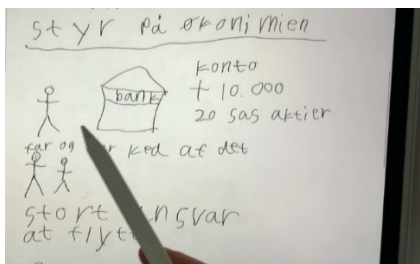 styr på økonimien
bank
konto
+ 10.000
20 sas aktier
far og ked af det
stort ansvar
at flytt